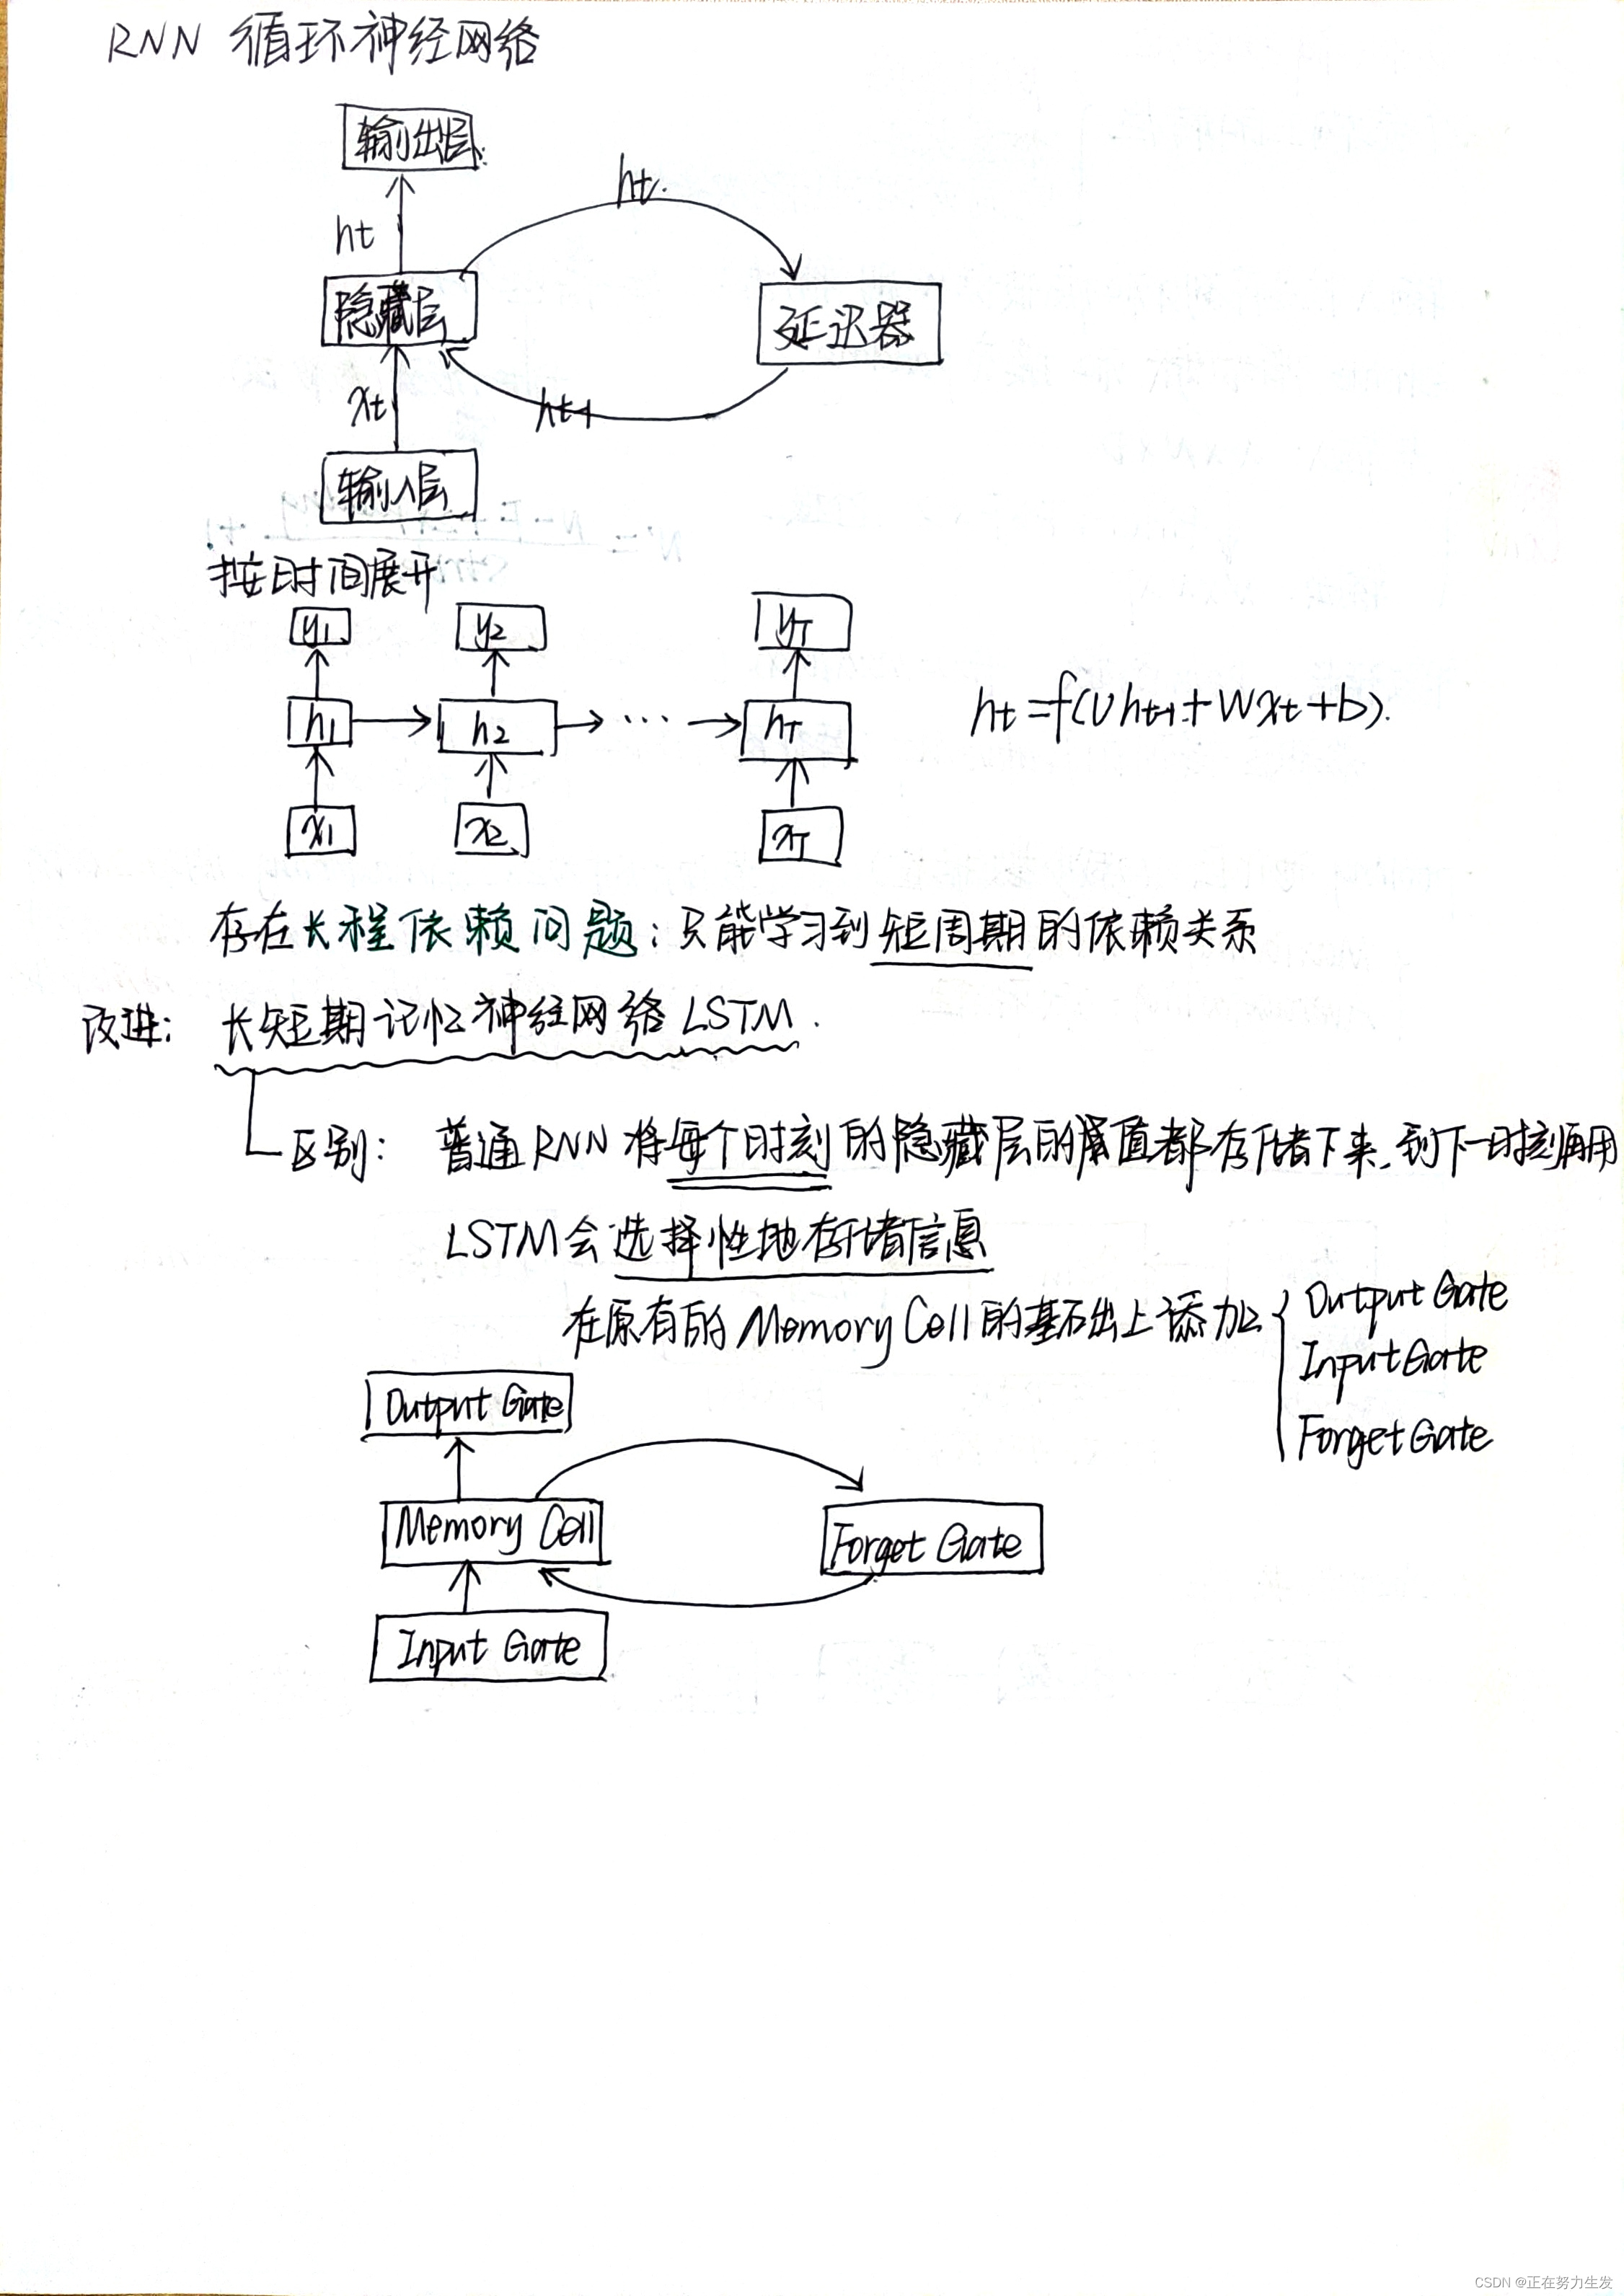 RNN 循环神经网络
输出层
ht
ht
隐藏层
延迟器
xt
ht-1
输入层
按时间展开
y1 y2 yT
h1 h2 ... hT
ht=f(Uht-1+Wxt+b).
x1 x2 xT
存在长程依赖问题:只能学习到短周期的依赖关系
改进: 长短期记忆神经网络LSTM.
区别: 普通RNN将每个时刻的隐藏层的值都存储下来,到下一时刻再用
LSTM会选择性地存储信息
在原有的Memory Cell的基础上添加{ Output Gate
Input Gate
Forget Gate
Output Gate
Memory Cell
Forget Gate
Input Gate
CSDN @正在努力生发